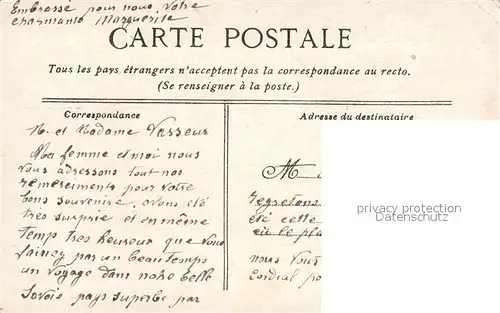 Embrasse pour nous votre
charmante Marguerite
CARTE POSTALE
Tous les pays étrangers n'acceptent pas la correspondance au recto.
(Se renseigner à la poste.)
Correspondance
M. et Madame Vasseur
Ma femme et moi nous
vous adressons tout nos
remerciments pour votre
bons souvenire. avons été
très surpris et en même
temps très heureux que vous
faissez par un beau temps
un voyage dans notre belle
Savois pays superbe par
Adresse du destinataire
M
regretons
été cette
nous
Cordial
privacy protection
Datenschutz